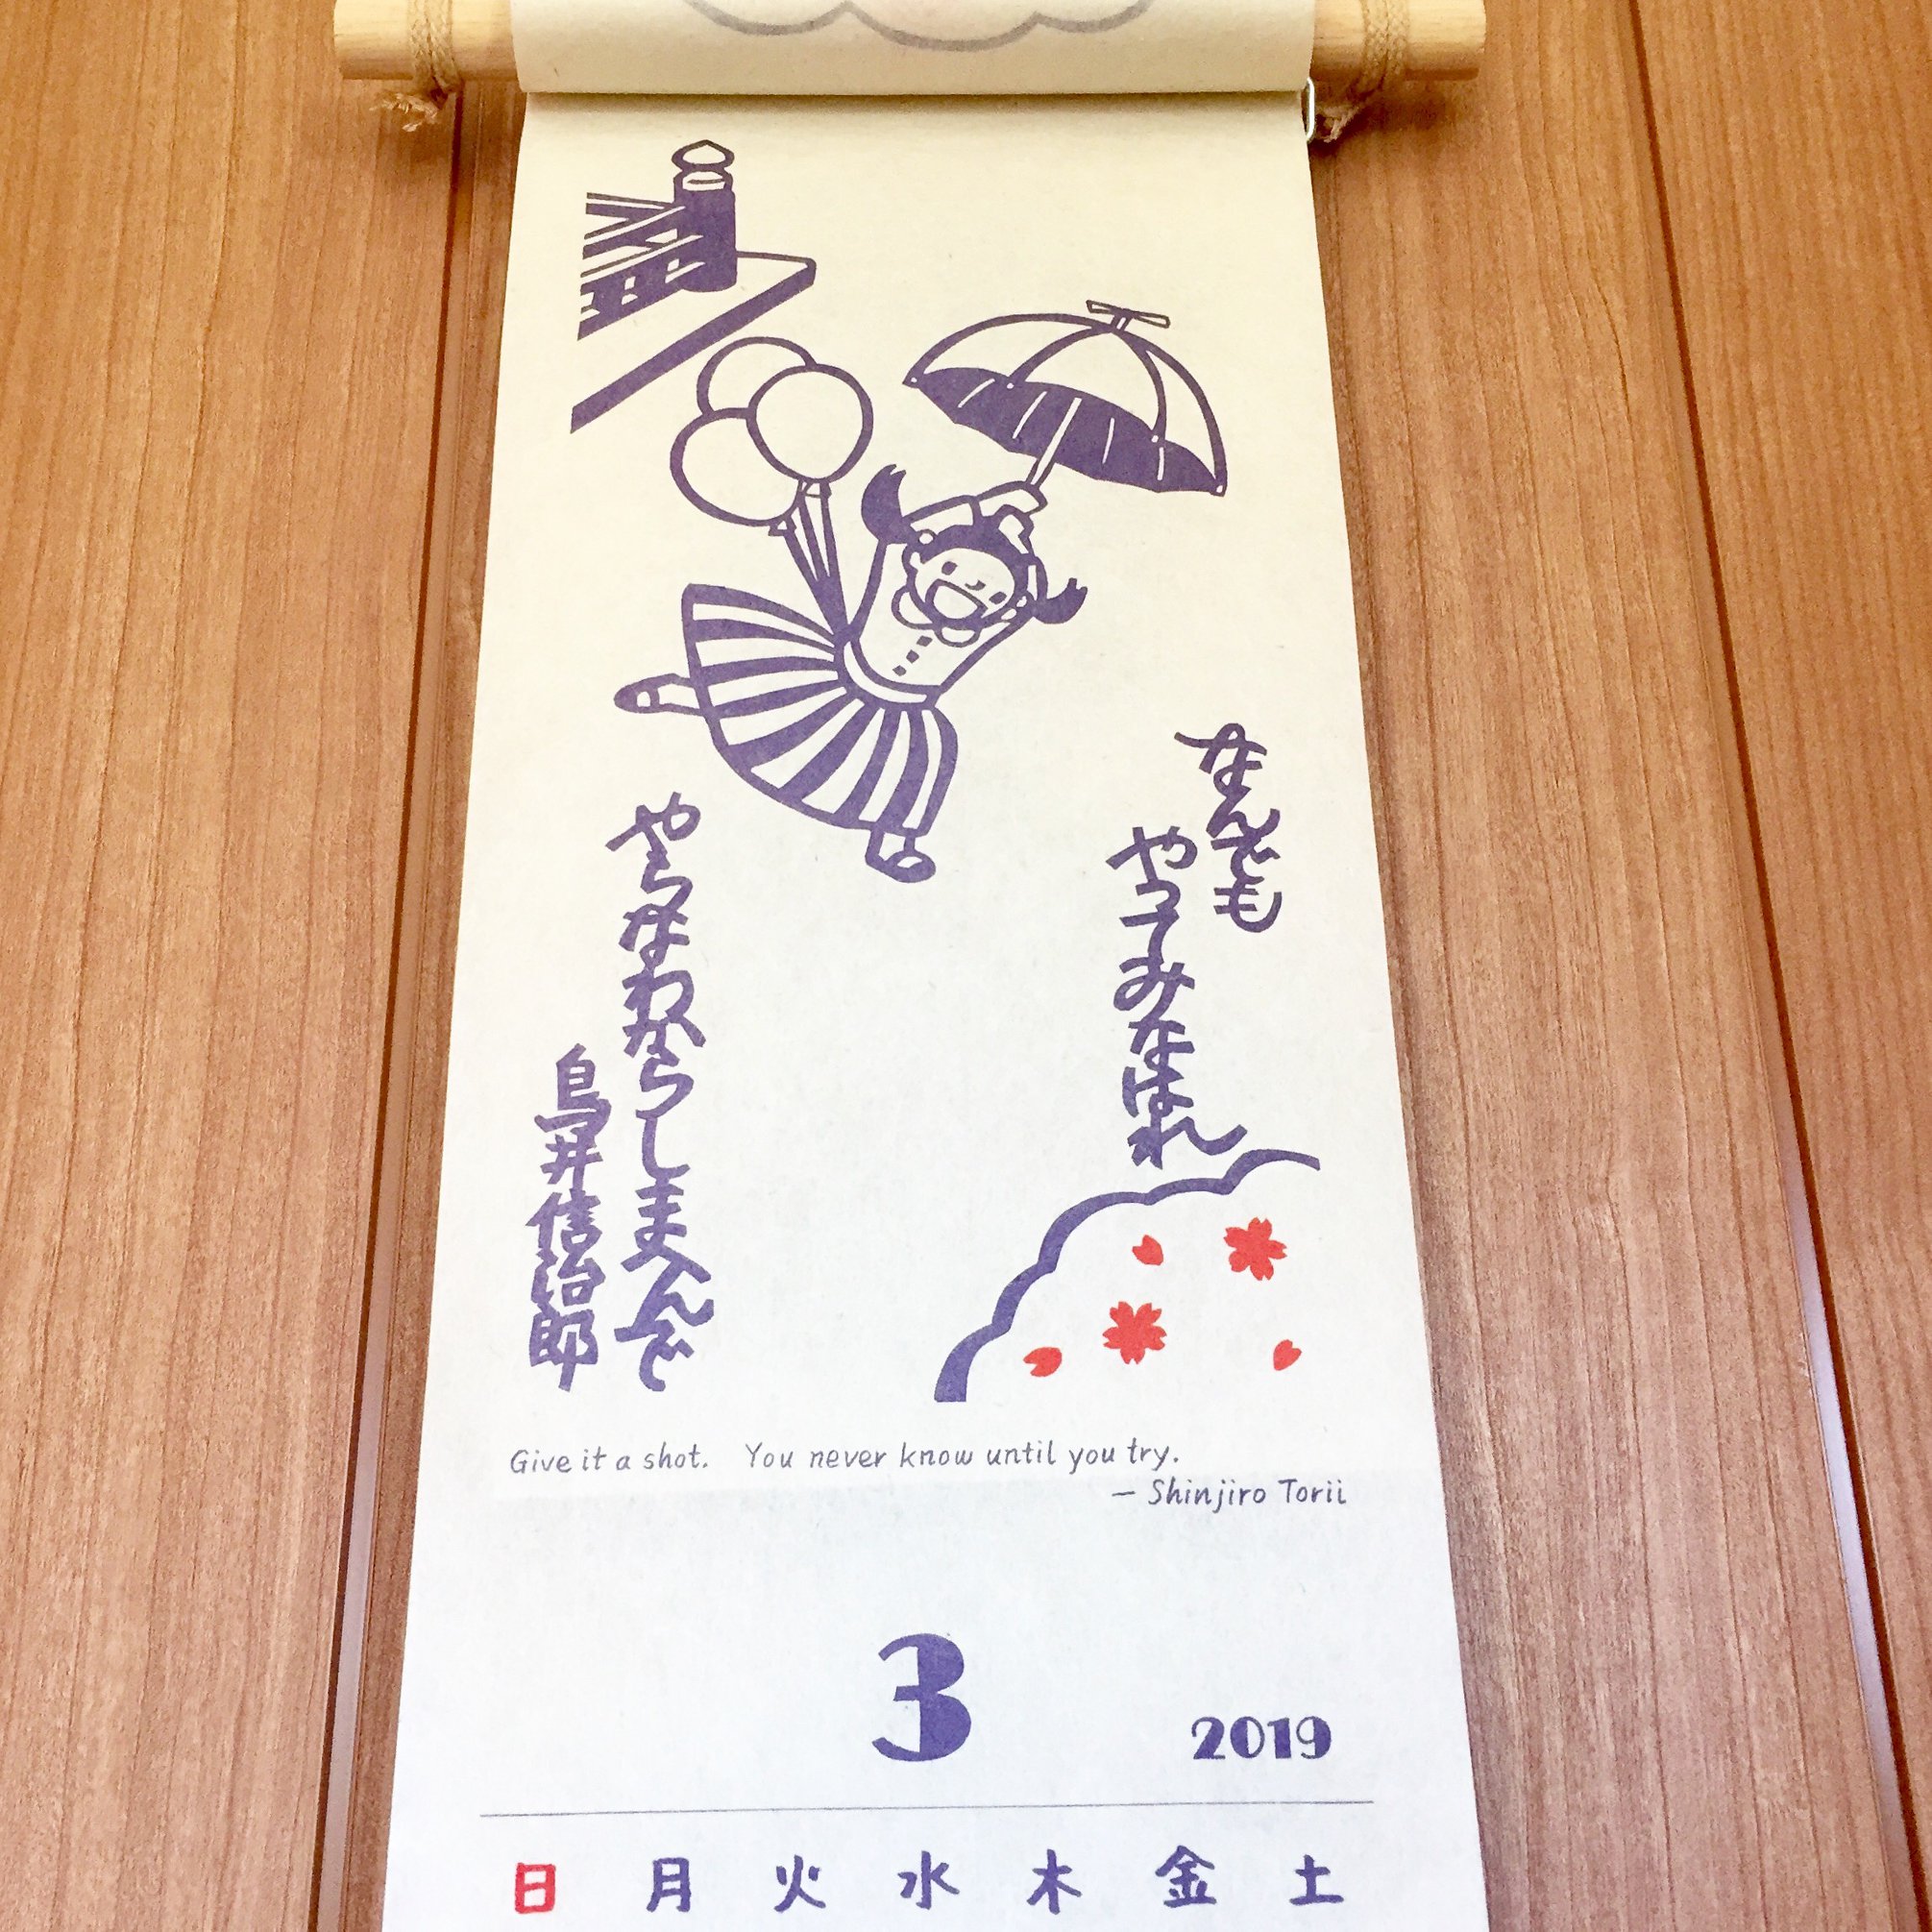 なんでも
やってみなはれ
やらなわからしまへんで
鳥井信治郎
Give it a shot. You never know until you try.
— Shinjiro Torii
3
2019
日 月 火 水 木 金 土